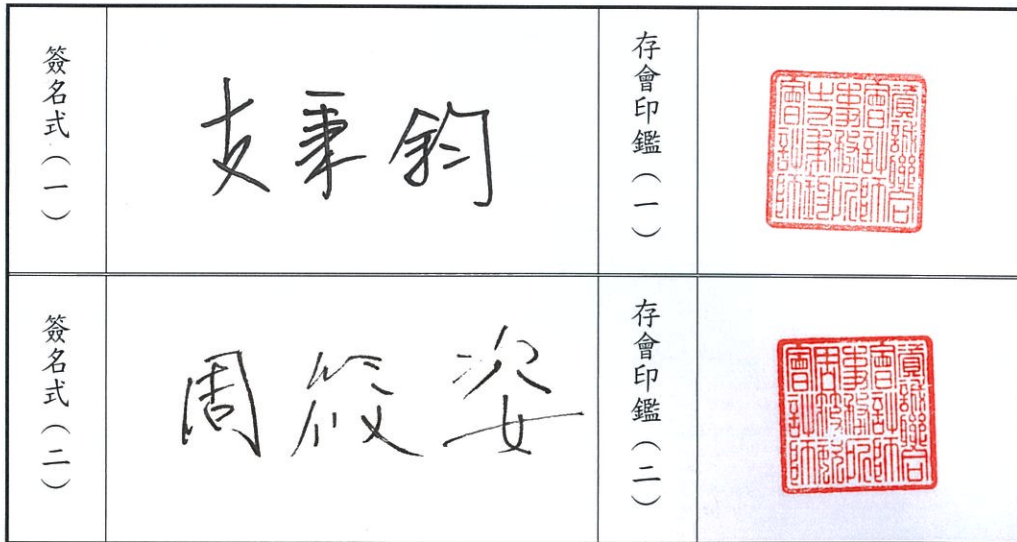 簽名式（一）
支秉鈞
存會印鑑（一）
資誠聯合會計師事務所支秉鈞會計師
簽名式（二）
周筱姿
存會印鑑（二）
資誠聯合會計師事務所周筱姿會計師